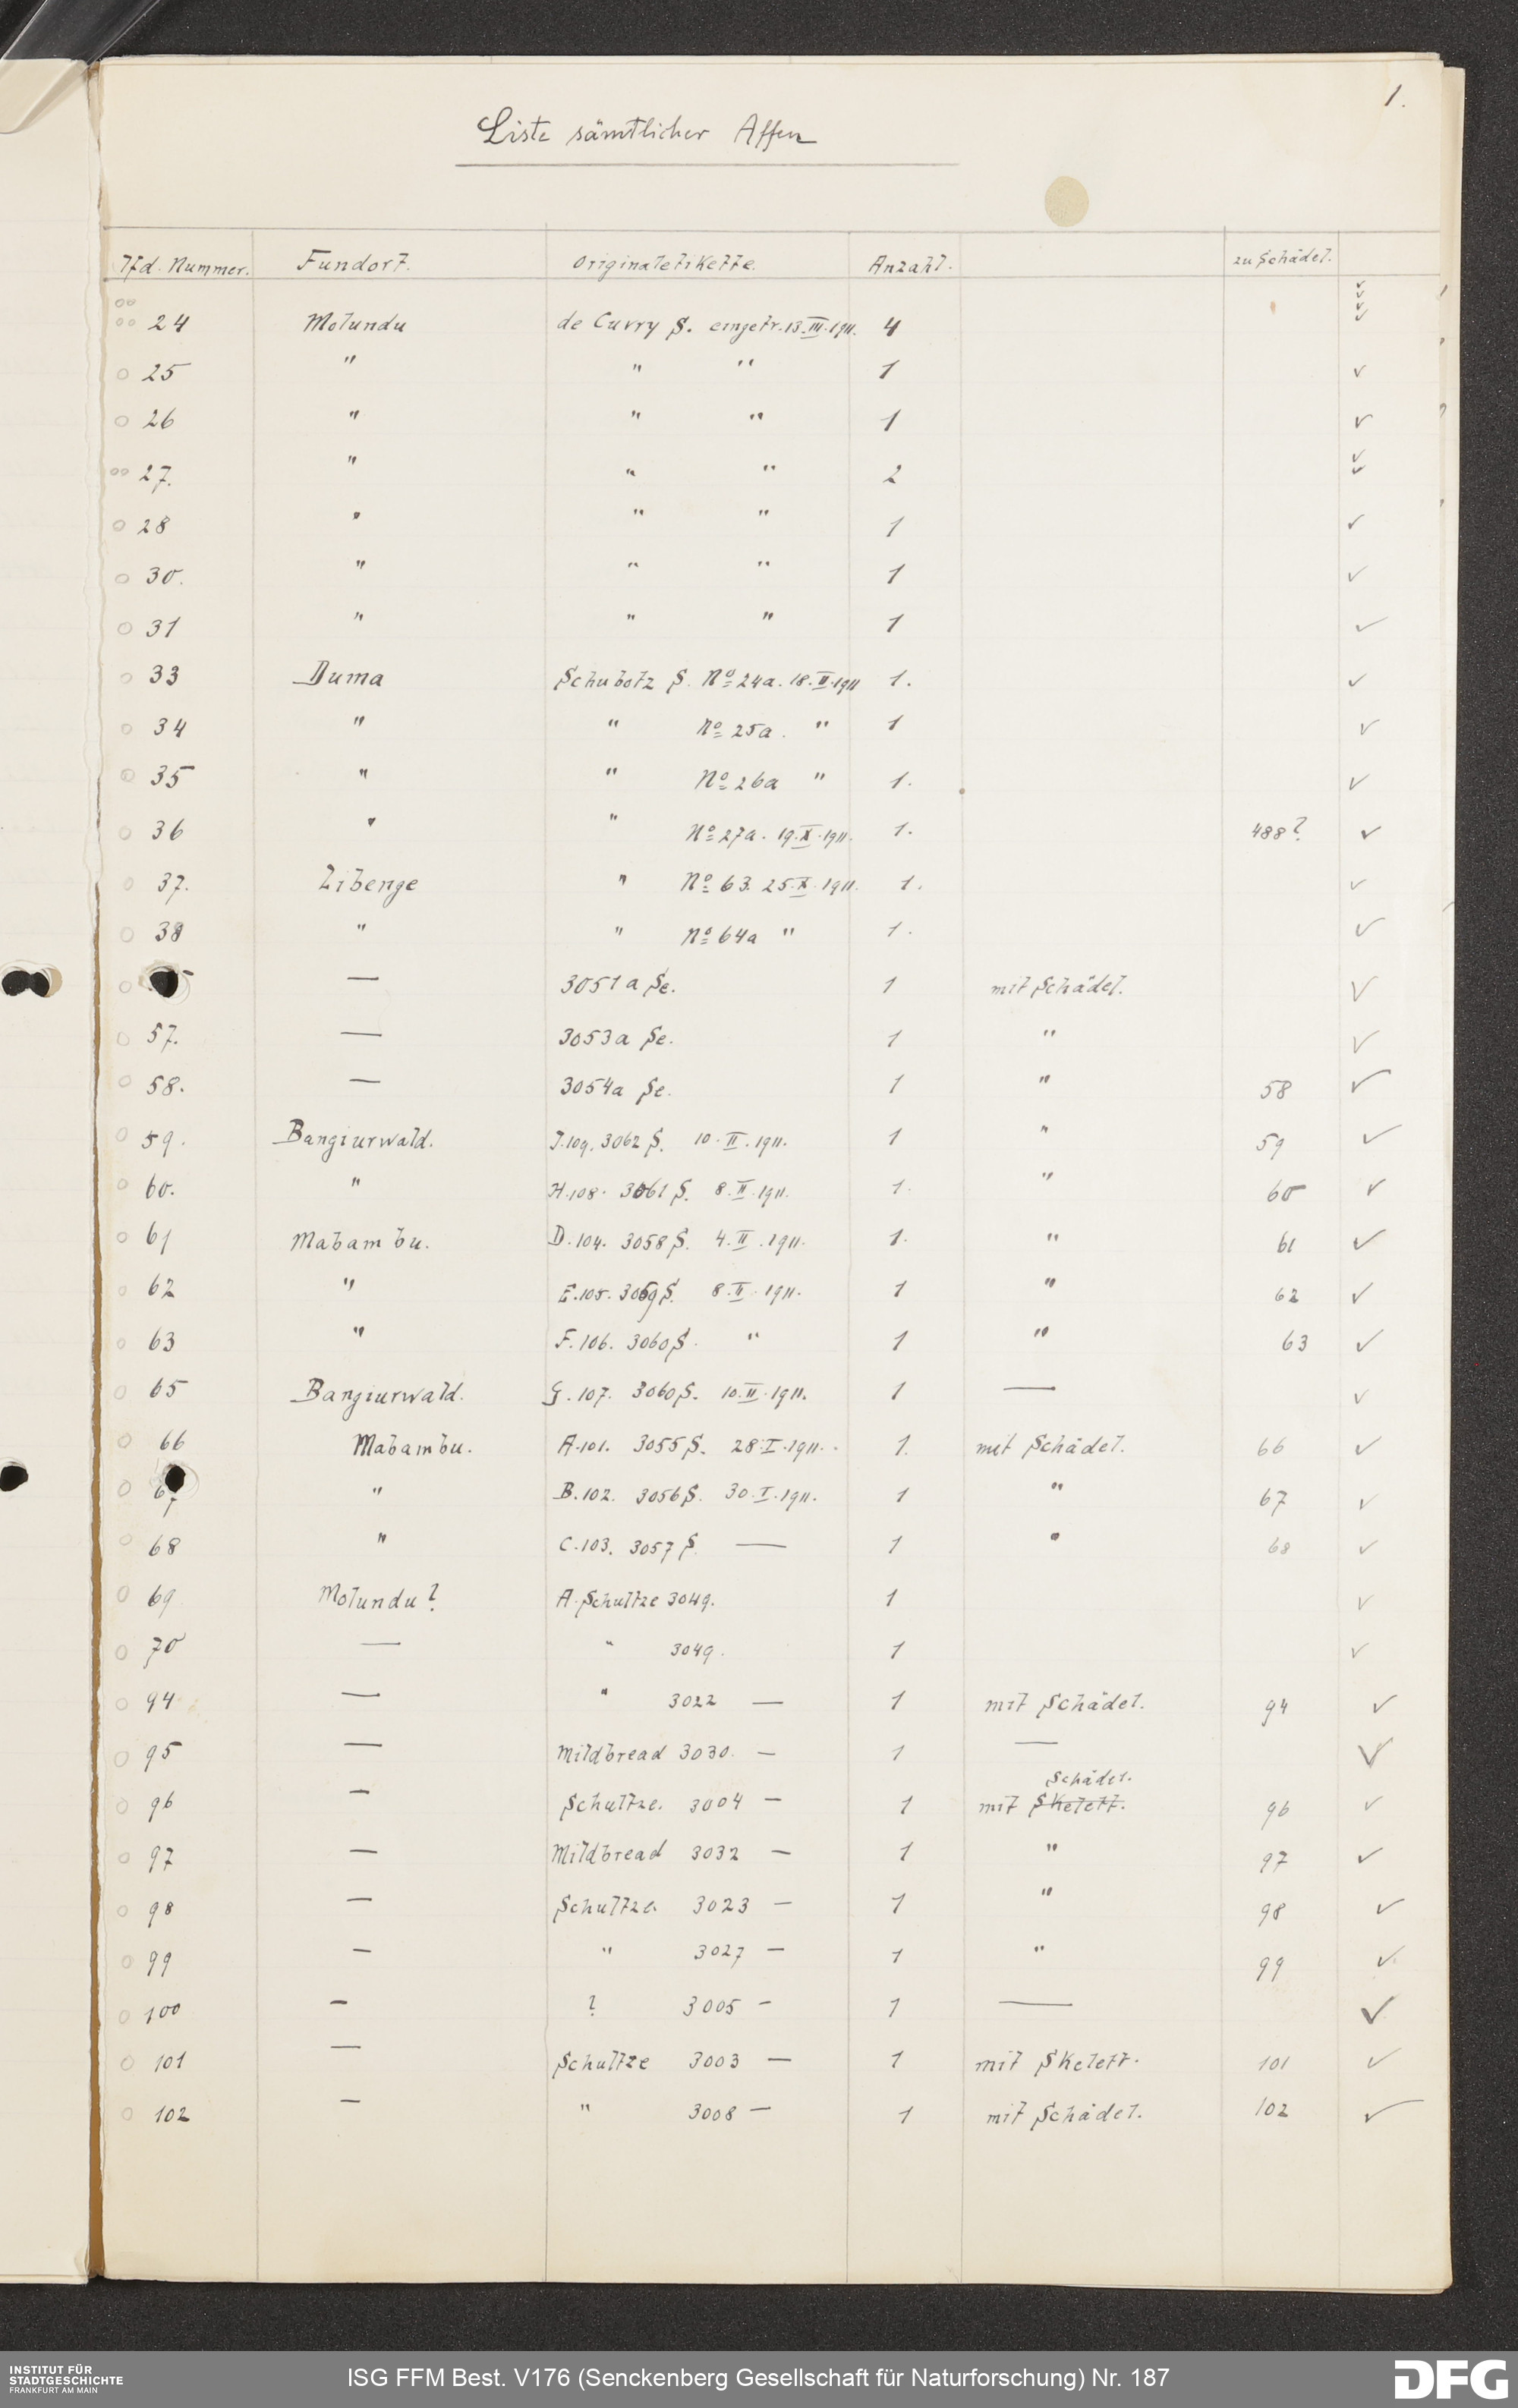 1.
Liste sämtlicher Affen
lfd. Nummer. Fundort. Originaletikette. Anzahl. zu Schädel.
24 Molundu de Cuvry S. eingetr. 13.III.1911. 4
25 " " " 1
26 " " " 1
27. " " " 2
28 " " " 1
30. " " " 1
31 " " " 1
33 Duma Schubotz S. No 24a. 18.II.1911 1.
34 " " No 25a. " 1
35 " " No 26a " 1.
36 " " No 27a. 19.X.1911. 1. 488?
37. Libenge " No 63. 25.X.1911. 1.
38 " " No 64a " 1.
— 3051a Se. 1 mit Schädel.
57. — 3053a Se. 1 "
58. — 3054a Se. 1 " 58
59. Bangiurwald. J.109. 3062 S. 10.II.1911. 1 " 59
60. " H.108. 3061 S. 8.II.1911. 1. " 60
61 Mabambu. D.104. 3058 S. 4.II.1911. 1. " 61
62 " E.105. 3059 S. 8.II.1911. 1 " 62
63 " F.106. 3060 S. " 1 " 63
65 Bangiurwald. G.107. 3060 S. 10.II.1911. 1 —
66 Mabambu. A.101. 3055 S. 28.I.1911. 1. mit Schädel. 66
67 " B.102. 3056 S. 30.I.1911. 1 " 67
68 " C.103. 3057 S. — 1 " 68
69 Molundu? A. Schultze 3049. 1
70 — " 3049. 1
94 — " 3022 — 1 mit Schädel. 94
95 — Mildbread 3030. — 1 —
Schädel.
96 — Schultze. 3004 — 1 mit Skelett. 96
97 — Mildbread 3032 — 1 " 97
98 — Schultze. 3023 — 1 " 98
99 — " 3027 — 1 " 99
100 — ? 3005 — 1 —
101 — Schultze 3003 — 1 mit Skelett. 101
102 — " 3008 — 1 mit Schädel. 102
INSTITUT FÜR
STADTGESCHICHTE
FRANKFURT AM MAIN
ISG FFM Best. V176 (Senckenberg Gesellschaft für Naturforschung) Nr. 187
DFG